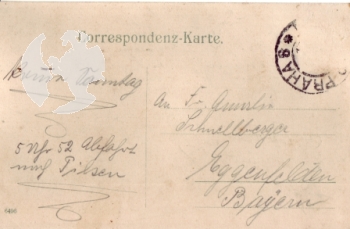 Correspondenz-Karte.
PRAHA 8
Sonntag
5 Uhr 52 Abfahrt
nach Pilsen
An
Schnellberger
Eggenfelden
Bayern